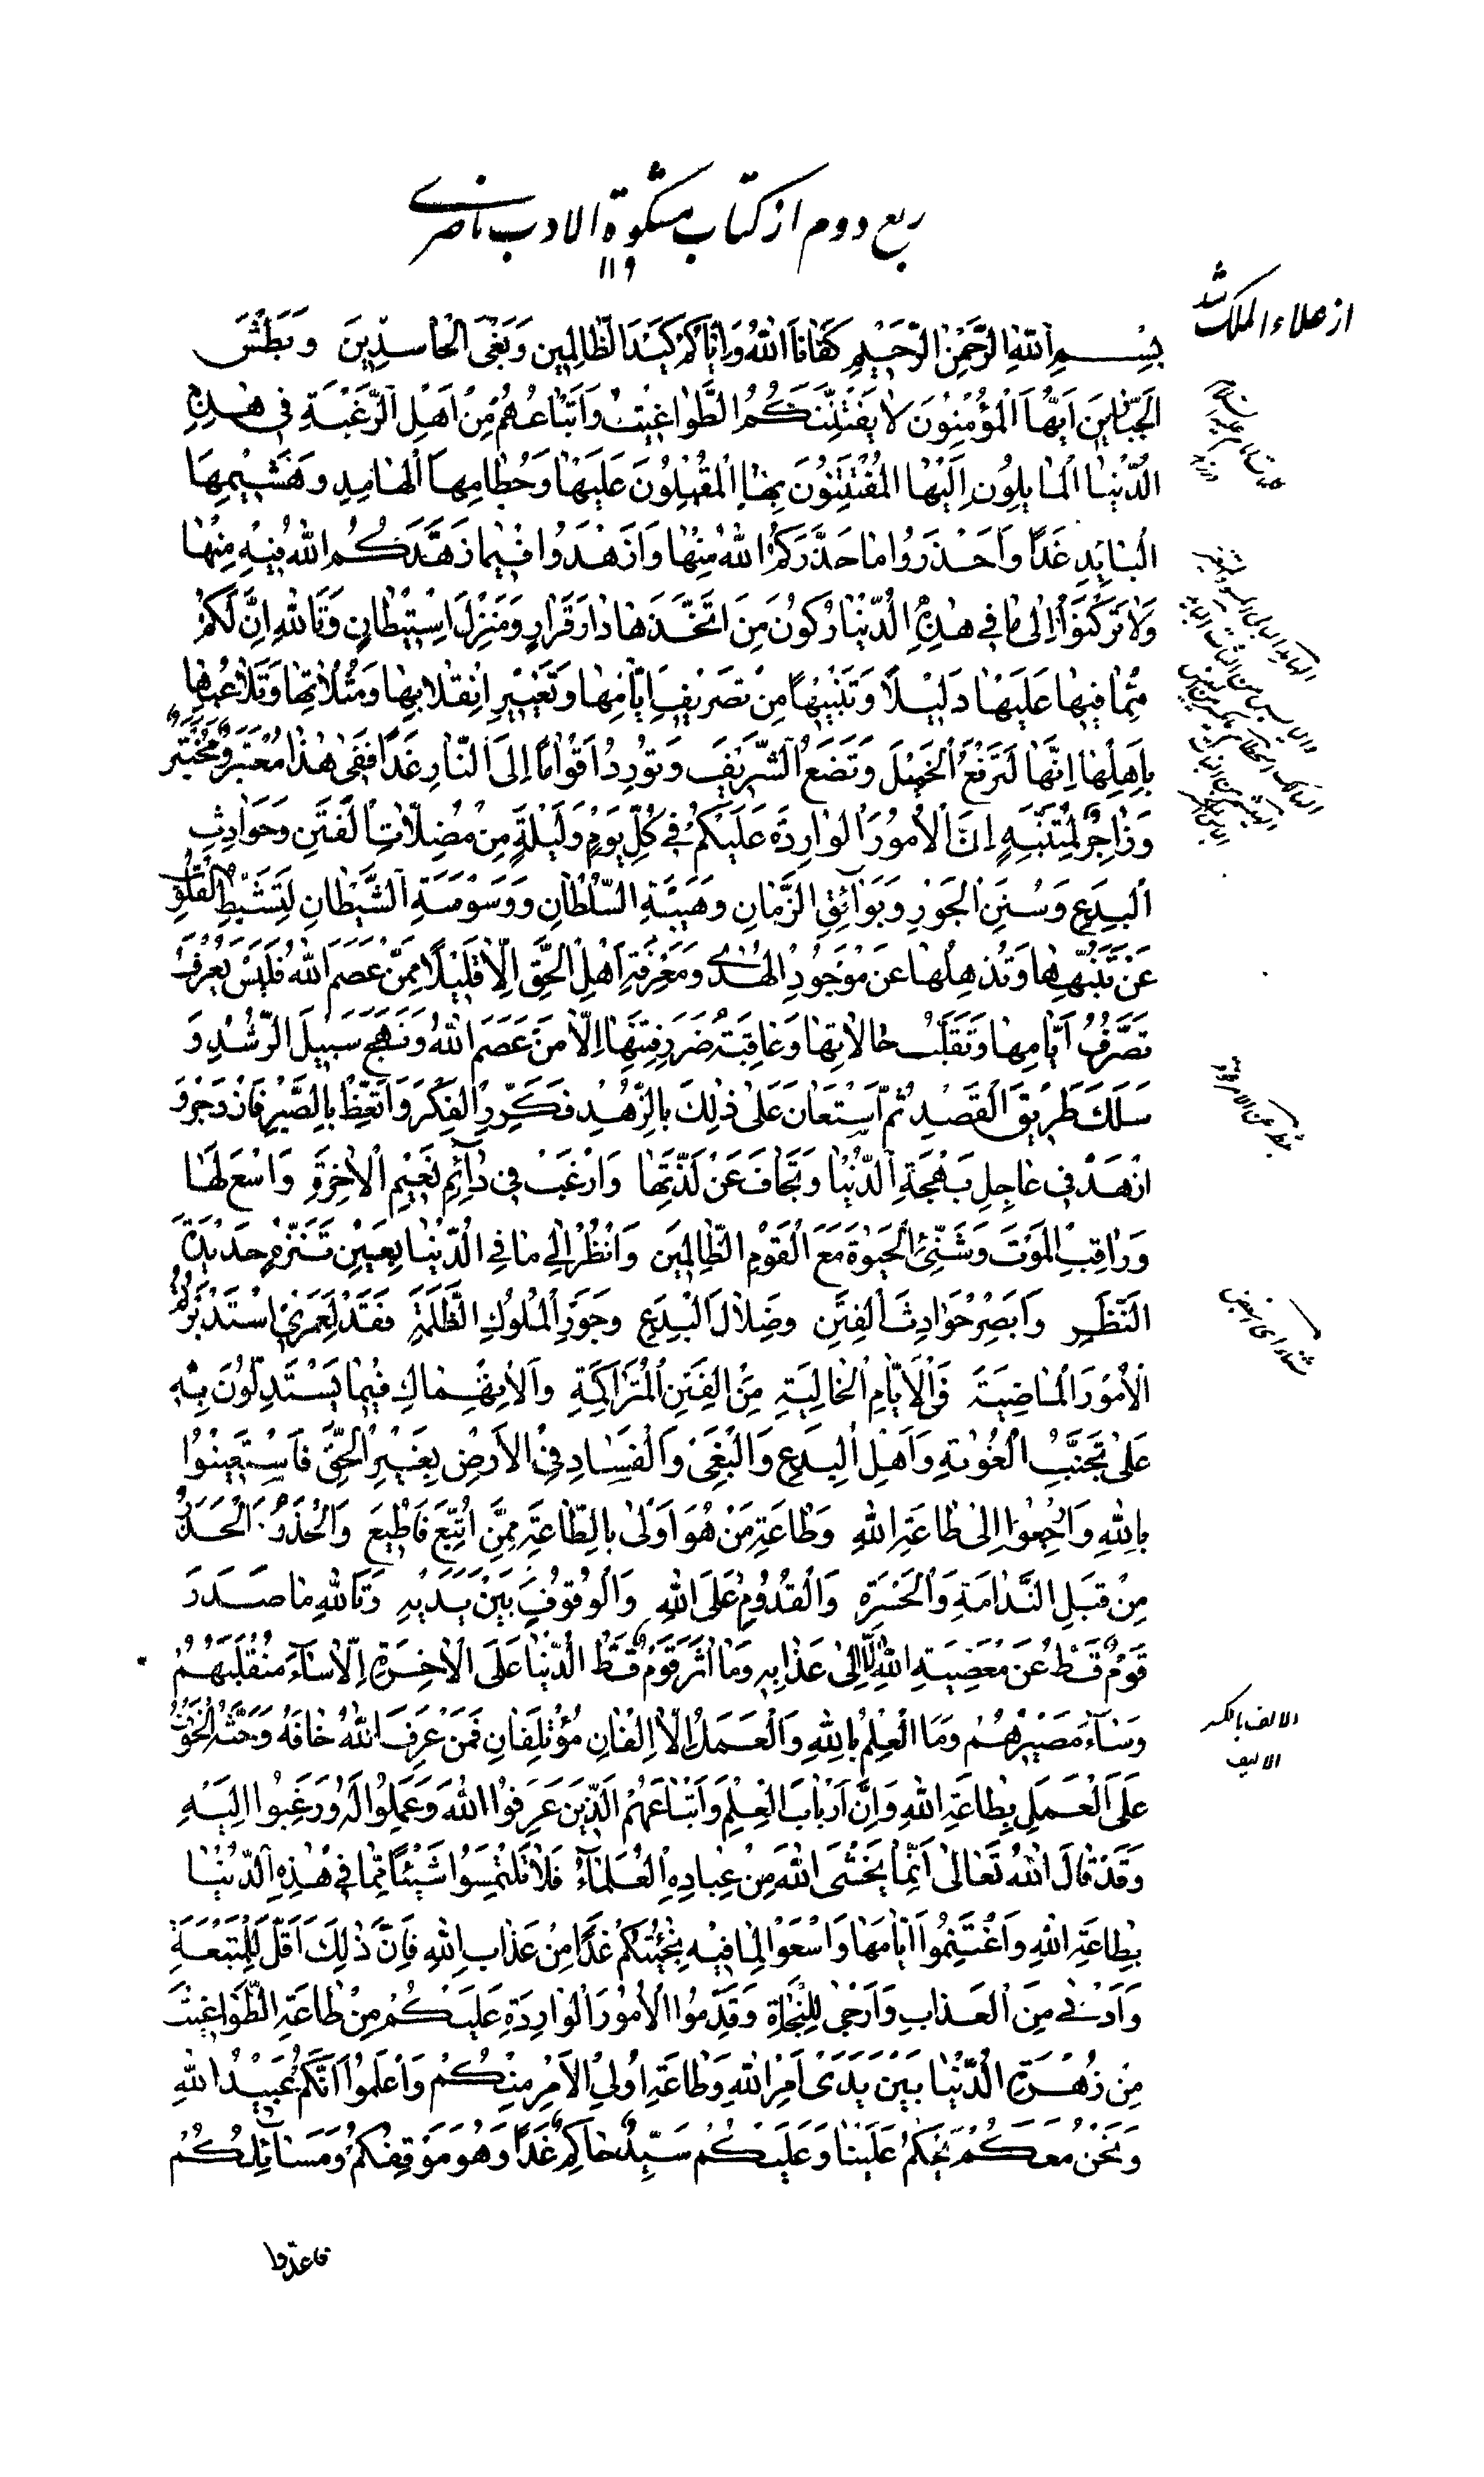 ربع دوم از کتاب مشکوة الادب ناصری
١١٩
از علاء الملک شد
بِسْمِ اللهِ الرَّحْمٰنِ الرَّحِيْمِ كَفَانَا اللهُ وَاِيَّاكُمْ كَيْدَ الظَّالِمِينَ وَبَغْىَ الْحَاسِدِينَ وَبَطْشَ
الْجَبَّارِينَ اَيُّهَا الْمُؤْمِنُونَ لَا يَفْتِنَنَّكُمُ الطَّوَاغِيتُ وَاَتْبَاعُهُمْ مِنْ اَهْلِ الرَّغْبَةِ فِى هٰذِهِ
الدُّنْيَا الْمَايِلُونَ اِلَيْهَا الْمُفْتَتِنُونَ بِهَا الْمُقْبِلُونَ عَلَيْهَا وَحُطَامِهَا الْهَامِدِ وَهَشِيْمِهَا
الْبَايِدِ غَدًا وَاحْذَرُوا مَا حَذَّرَكُمُ اللهُ مِنْهَا وَازْهَدُوا فِيمَا زَهَّدَكُمُ اللهُ فِيْهِ مِنْهَا
وَلَا تَرْكَنُوْا اِلىٰ مَا فِى هٰذِهِ الدُّنْيَا رُكُونَ مَنِ اتَّخَذَهَا دَارَ قَرَارٍ وَمَنْزِلَ اسْتِيْطَانٍ وَتَاللهِ اِنَّ لَكُمْ
مِمَّا فِيهَا عَلَيْهَا دَلِيْلًا وَتَنْبِيهًا مِنْ تَصْرِيفِ اَيَّامِهَا وَتَغْيِيْرِ اِنْقِلَابِهَا وَمَثُلَاتِهَا وَتَلَاعُبِهَا
بِاَهْلِهَا اِنَّهَا لَتَرْفَعُ الْخَمِيْلَ وَتَضَعُ الشَّرِيفَ وَتُوْرِدُ اَقْوَامًا اِلَى النَّارِ غَدًا فَفِى هٰذَا مُعْتَبَرٌ وَمُخْتَبَرٌ
وَزَاجِرٌ لِمُتَنَبِّهٍ اِنَّ الْاُمُوْرَ الْوَارِدَةَ عَلَيْكُمْ فِى كُلِّ يَوْمٍ وَلَيْلَةٍ مِنْ مُضِلَّاتِ الْفِتَنِ وَحَوَادِثِ
الْبِدَعِ وَسُنَنِ الْجَوْرِ وَبَوَآئِقِ الزَّمَانِ وَهَيْبَةِ السُّلْطَانِ وَوَسْوَسَةِ الشَّيْطَانِ لَتُثَبِّطُ الْقُلُوبَ
عَنْ تَنَبُّهِهَا وَتُذْهِلُهَا عَنْ مَوْجُودِ الْهُدىٰ وَمَعْرِفَةِ اَهْلِ الْحَقِّ اِلَّا قَلِيْلًا مِمَّنْ عَصَمَ اللهُ فَلَيْسَ يَعْرِفُ
تَصَرُّفَ اَيَّامِهَا وَتَقَلُّبَ حَالَاتِهَا وَعَاقِبَةَ ضَرَرِ فِتْنَتِهَا اِلَّا مَنْ عَصَمَ اللهُ وَنَهَجَ سَبِيْلَ الرُّشْدِ وَ
سَلَكَ طَرِيْقَ الْقَصْدِ ثُمَّ اسْتَعَانَ عَلىٰ ذٰلِكَ بِالزُّهْدِ فَكَرَّرَ الْفِكْرَ وَاتَّعَظَ بِالصَّبْرِ فَازْدَجَرَ وَ
ازْهَدْ فِى عَاجِلِ بَهْجَةِ الدُّنْيَا وَتَجَافَ عَنْ لَذَّتِهَا وَارْغَبْ فِى دَآئِمِ نَعِيْمِ الْاٰخِرَةِ وَاسْعَ لَهَا
وَرَاقِبِ الْمَوْتَ وَشَنِّئِ الْحَيٰوةَ مَعَ الْقَوْمِ الظَّالِمِينَ وَانْظُرْ اِلىٰ مَا فِى الدُّنْيَا بِعَيْنِ تَنَزُّهٍ حَدِيْدَةِ
النَّظَرِ وَاَبْصِرْ حَوَادِثَ الْفِتَنِ وَضَلَالَ الْبِدَعِ وَجَوْرَ الْمُلُوكِ الظَّلَمَةِ فَقَدْ لَعَمْرِىْ اسْتَدْبَرْتُمُ
الْاُمُوْرَ الْمَاضِيَةَ فِى الْاَيَّامِ الْخَالِيَةِ مِنَ الْفِتَنِ الْمُتَرَاكِمَةِ وَالْاِنْهِمَاكِ فِيْمَا يَسْتَدِلُّوْنَ بِهِ
عَلىٰ تَجَنُّبِ الْغُوٰاةِ وَاَهْلِ الْبِدَعِ وَالْبَغْىِ وَالْفَسَادِ فِى الْاَرْضِ بِغَيْرِ الْحَقِّ فَاسْتَعِينُوْا
بِاللهِ وَارْجِعُوْا اِلىٰ طَاعَةِ اللهِ وَطَاعَةِ مَنْ هُوَ اَوْلىٰ بِالطَّاعَةِ مِمَّنِ اتُّبِعَ فَاُطِيْعَ وَالْحَذَرَ الْحَذَرَ
مِنْ قَبْلِ النَّدَامَةِ وَالْحَسْرَةِ وَالْقُدُوْمِ عَلَى اللهِ وَالْوُقُوْفِ بَيْنَ يَدَيْهِ وَتَاللهِ مَا صَدَرَ
قَوْمٌ قَطُّ عَنْ مَعْصِيَةِ اللهِ اِلَّا اِلىٰ عَذَابِهِ وَمَا اٰثَرَ قَوْمٌ قَطُّ الدُّنْيَا عَلَى الْاٰخِرَةِ اِلَّا سَآءَ مُنْقَلَبُهُمْ
وَسَآءَ مَصِيْرُهُمْ وَمَا الْعِلْمُ بِاللهِ وَالْعَمَلُ اِلَّا اِلْفَانِ مُؤْتَلِفَانِ فَمَنْ عَرَفَ اللهَ خَافَهُ وَحَثَّهُ الْخَوْفُ
عَلَى الْعَمَلِ بِطَاعَةِ اللهِ وَاِنَّ اَرْبَابَ الْعِلْمِ وَاَتْبَاعَهُمُ الَّذِيْنَ عَرَفُوا اللهَ وَعَمِلُوا لَهُ وَرَغِبُوا اِلَيْهِ
وَقَدْ قَالَ اللهُ تَعَالىٰ اِنَّمَا يَخْشَى اللهَ مِنْ عِبَادِهِ الْعُلَمَآءُ فَلَا تَلْتَمِسُوا شَيْئًا مِمَّا فِى هٰذِهِ الدُّنْيَا
بِطَاعَةِ اللهِ وَاغْتَنِمُوا اَيَّامَهَا وَاسْعَوْا لِمَا فِيْهِ نَجَاتُكُمْ غَدًا مِنْ عَذَابِ اللهِ فَاِنَّ ذٰلِكَ اَقَلُّ لِلتَّبِعَةِ
وَاَدْنىٰ مِنَ الْعَذَابِ وَاَرْجىٰ لِلنَّجَاةِ وَقَدِّمُوا الْاُمُوْرَ الْوَارِدَةَ عَلَيْكُمْ مِنْ طَاعَةِ الطَّوَاغِيتِ
مِنْ زَهْرَةِ الدُّنْيَا بَيْنَ يَدَىْ اَمْرِ اللهِ وَطَاعَةِ اُولِى الْاَمْرِ مِنْكُمْ وَاعْلَمُوا اَنَّكُمْ عَبِيْدُ اللهِ
وَنَحْنُ مَعَكُمْ يَحْكُمُ عَلَيْنَا وَعَلَيْكُمْ سَيِّدٌ حَاكِمٌ غَدًا وَهُوَ مَوْقِفُكُمْ وَمَسَآئِلُكُمْ
ثبطه عن الامر
الالف بالکسر
الالیف
فاعدّوا